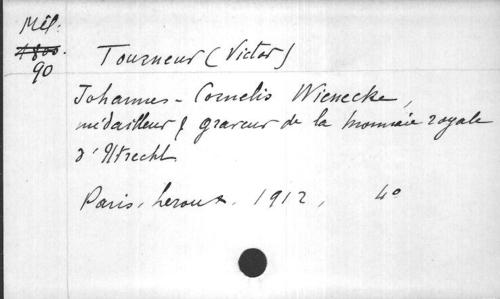 Mél.
1800.
90
Tourneur (Victor)
Johannes-Cornelis Wienecke,
médailleur & graveur de la monnaie royale
d'Utrecht
Paris, Leroux. 1912, 4°